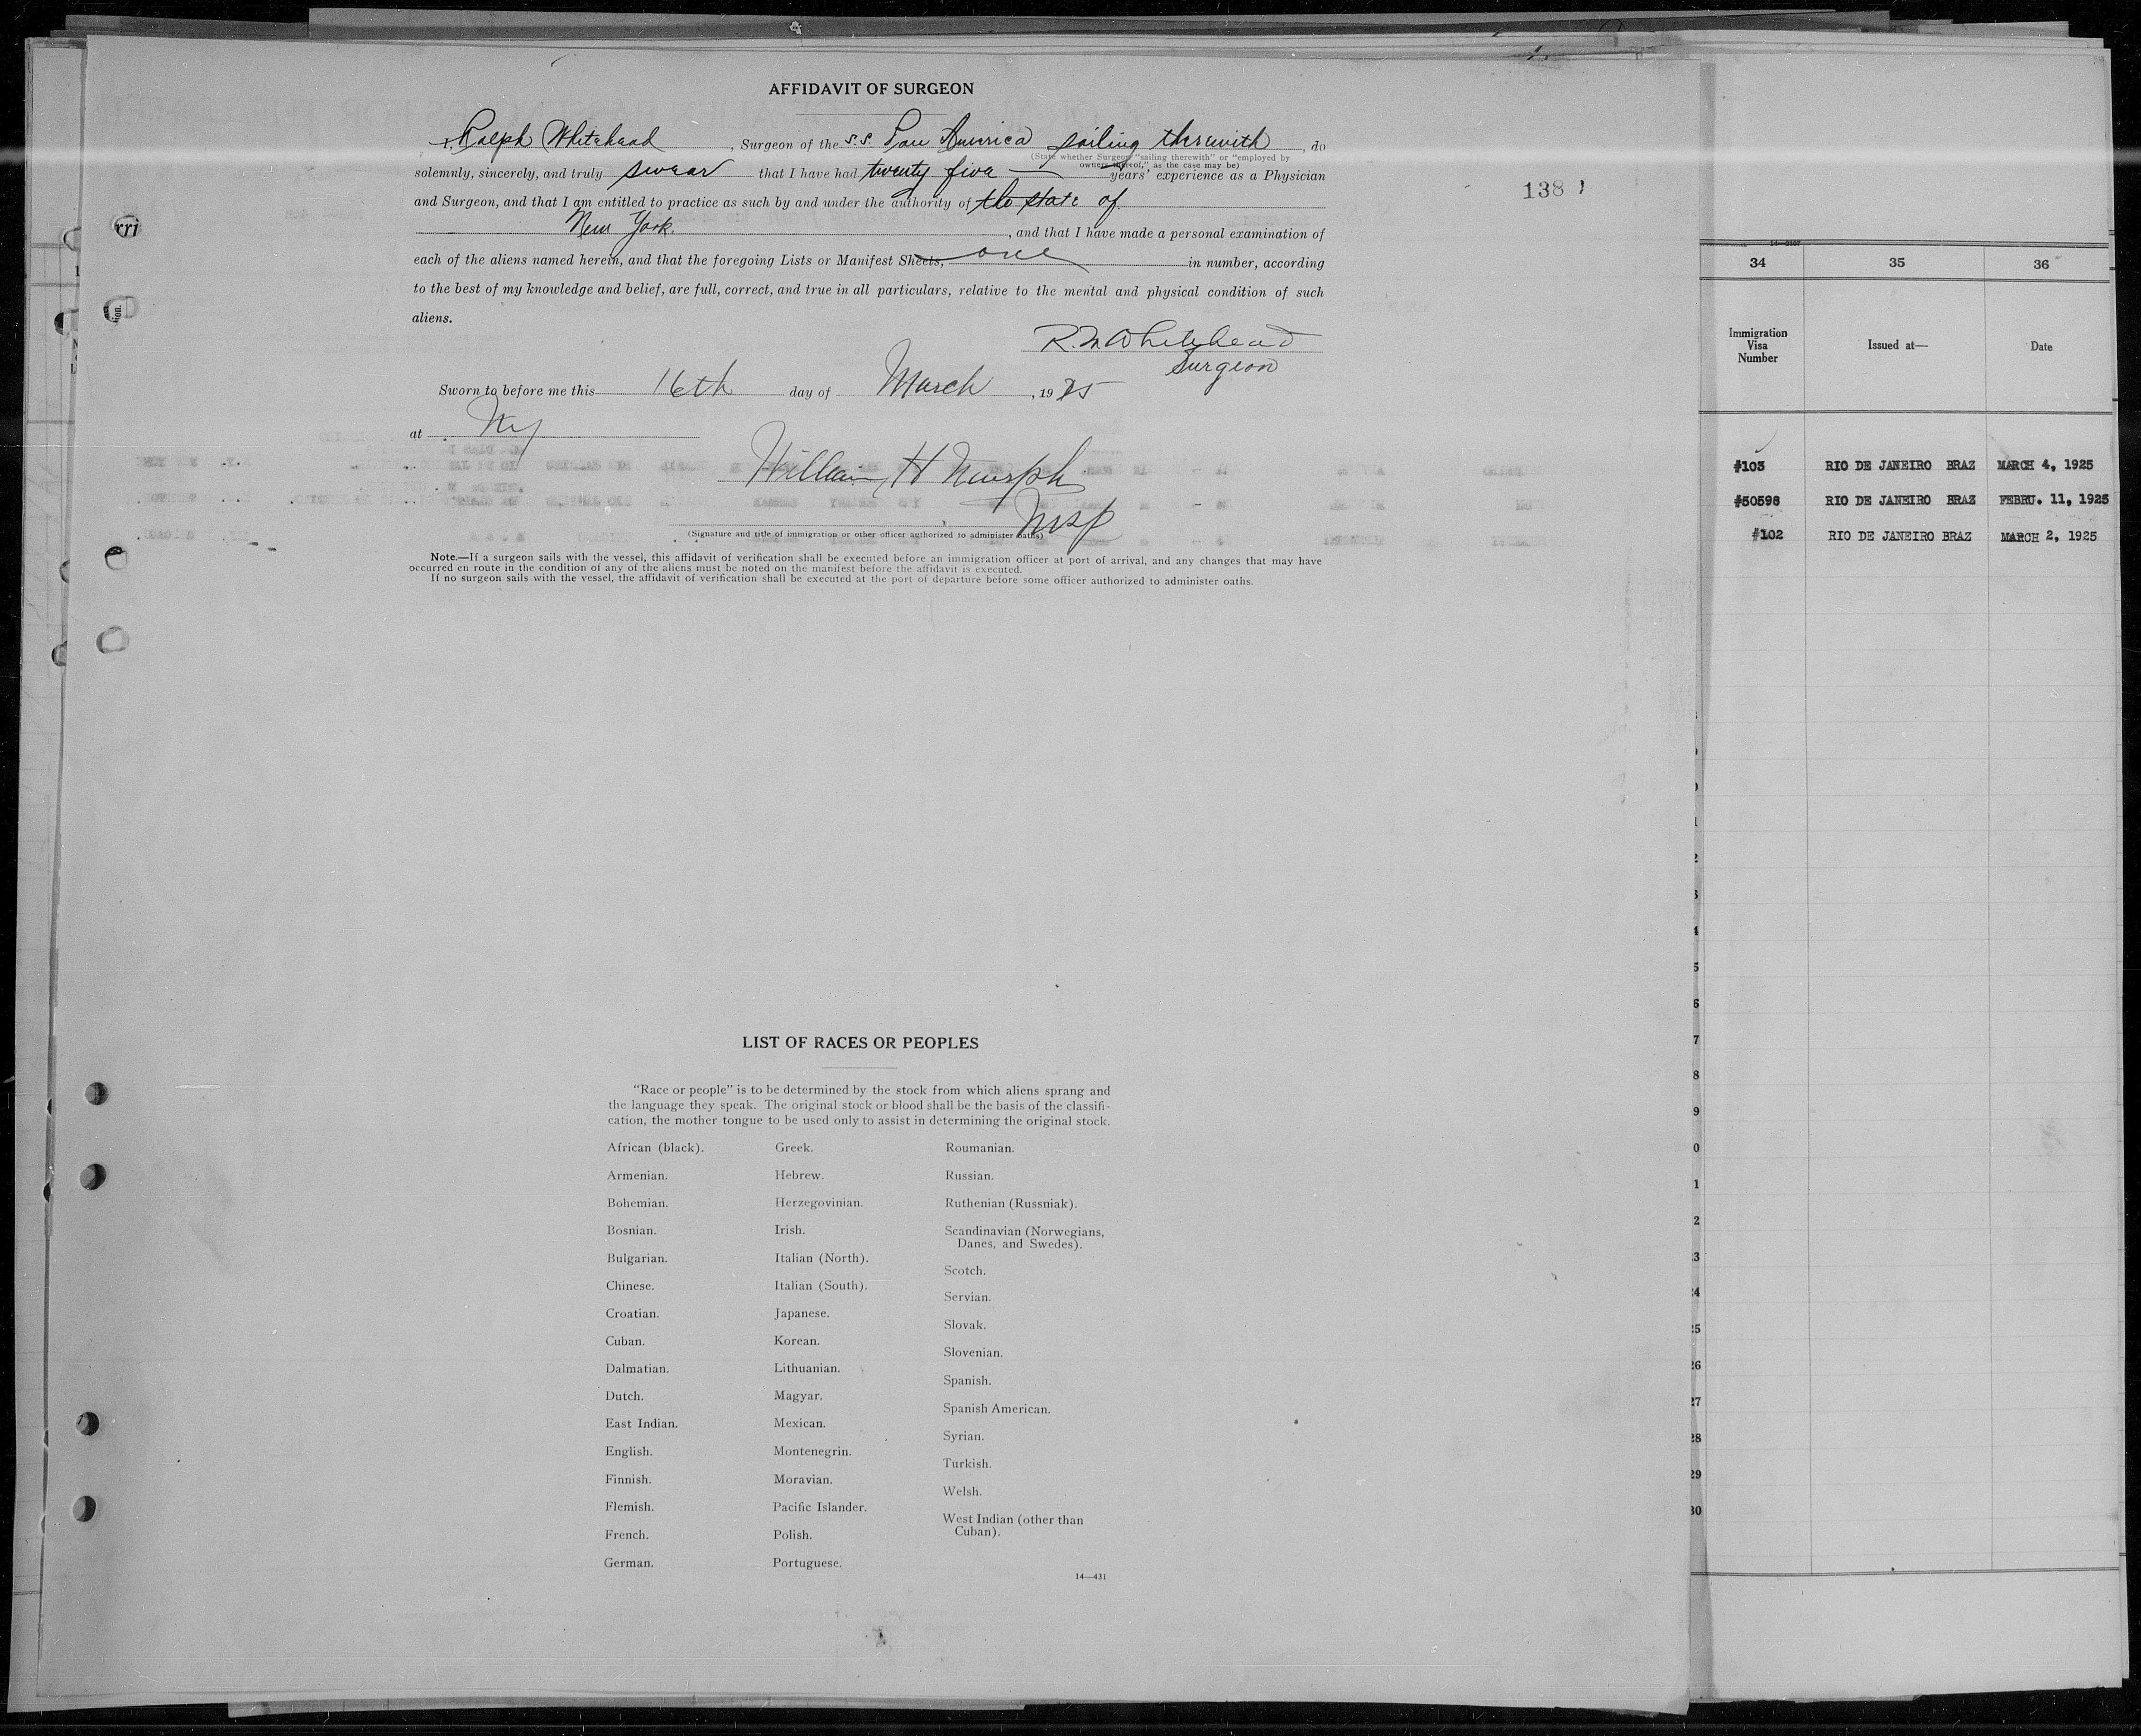 AFFIDAVIT OF SURGEON
I, Ralph Whitehead, Surgeon of the S.S. Pan America sailing therewith, do
(State whether Surgeon "sailing therewith" or "employed by
owners thereof," as the case may be)
solemnly, sincerely, and truly swear that I have had twenty five years' experience as a Physician
and Surgeon, and that I am entitled to practice as such by and under the authority of the state of
New York, and that I have made a personal examination of
each of the aliens named herein, and that the foregoing Lists or Manifest Sheets, one in number, according
to the best of my knowledge and belief, are full, correct, and true in all particulars, relative to the mental and physical condition of such
aliens.
Whitehead
Surgeon
Sworn to before me this 16th day of March, 1925
at NY
William H Murphy
(Signature and title of immigration or other officer authorized to administer oaths)
Note.—If a surgeon sails with the vessel, this affidavit of verification shall be executed before an immigration officer at port of arrival, and any changes that may have
occurred en route in the condition of any of the aliens must be noted on the manifest before the affidavit is executed.
If no surgeon sails with the vessel, the affidavit of verification shall be executed at the port of departure before some officer authorized to administer oaths.
LIST OF RACES OR PEOPLES
"Race or people" is to be determined by the stock from which aliens sprang and
the language they speak. The original stock or blood shall be the basis of the classifi-
cation, the mother tongue to be used only to assist in determining the original stock.
African (black).
Armenian.
Bohemian.
Bosnian.
Bulgarian.
Chinese.
Croatian.
Cuban.
Dalmatian.
Dutch.
East Indian.
English.
Finnish.
Flemish.
French.
German.
Greek.
Hebrew.
Herzegovinian.
Irish.
Italian (North).
Italian (South).
Japanese.
Korean.
Lithuanian.
Magyar.
Mexican.
Montenegrin.
Moravian.
Pacific Islander.
Polish.
Portuguese.
Roumanian.
Russian.
Ruthenian (Russniak).
Scandinavian (Norwegians,
Danes, and Swedes).
Scotch.
Servian.
Slovak.
Slovenian.
Spanish.
Spanish American.
Syrian.
Turkish.
Welsh.
West Indian (other than
Cuban).
14—431
138
34 35 36
Immigration
Visa
Number
Issued at—
Date
#103 RIO DE JANEIRO BRAZ MARCH 4, 1925
#50598 RIO DE JANEIRO BRAZ FEBRU. 11, 1925
#102 RIO DE JANEIRO BRAZ MARCH 2, 1925